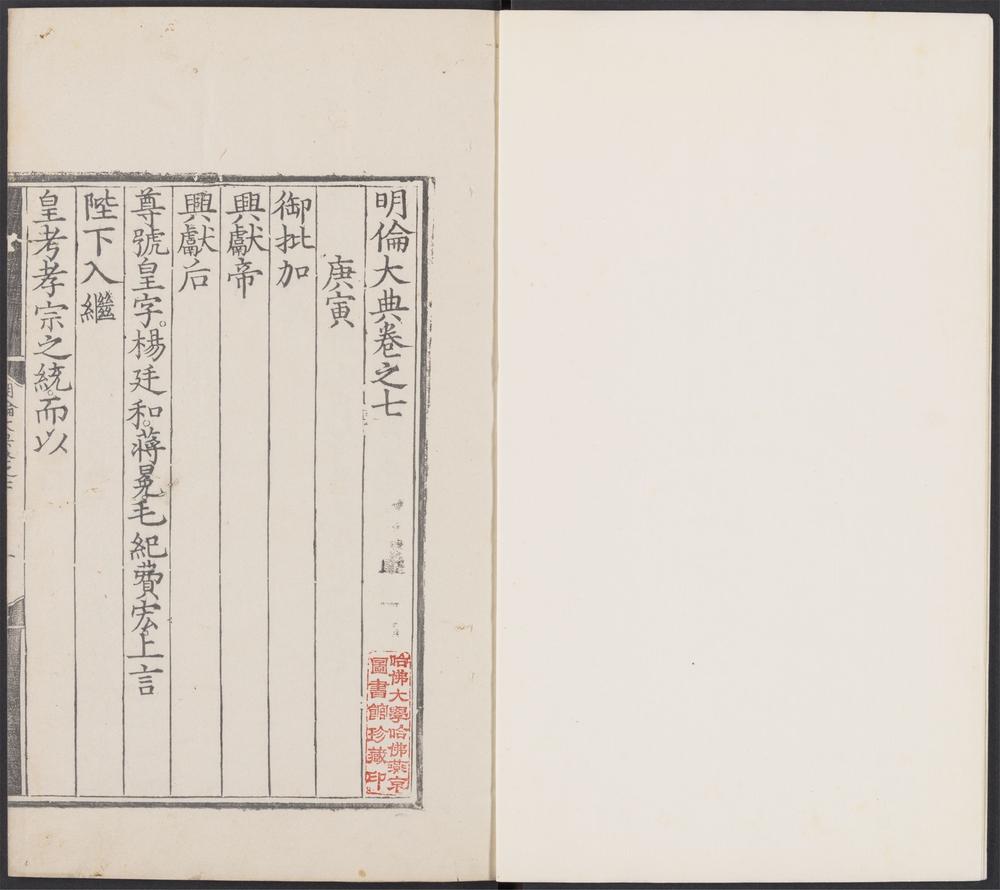 明倫大典卷之七
庚寅
御批加
興獻帝
興獻后
尊號皇字。楊廷和。蔣冕毛紀費宏上言
陛下入繼
皇考孝宗之統。而以
哈佛大學哈佛燕京
圖書館珍藏印